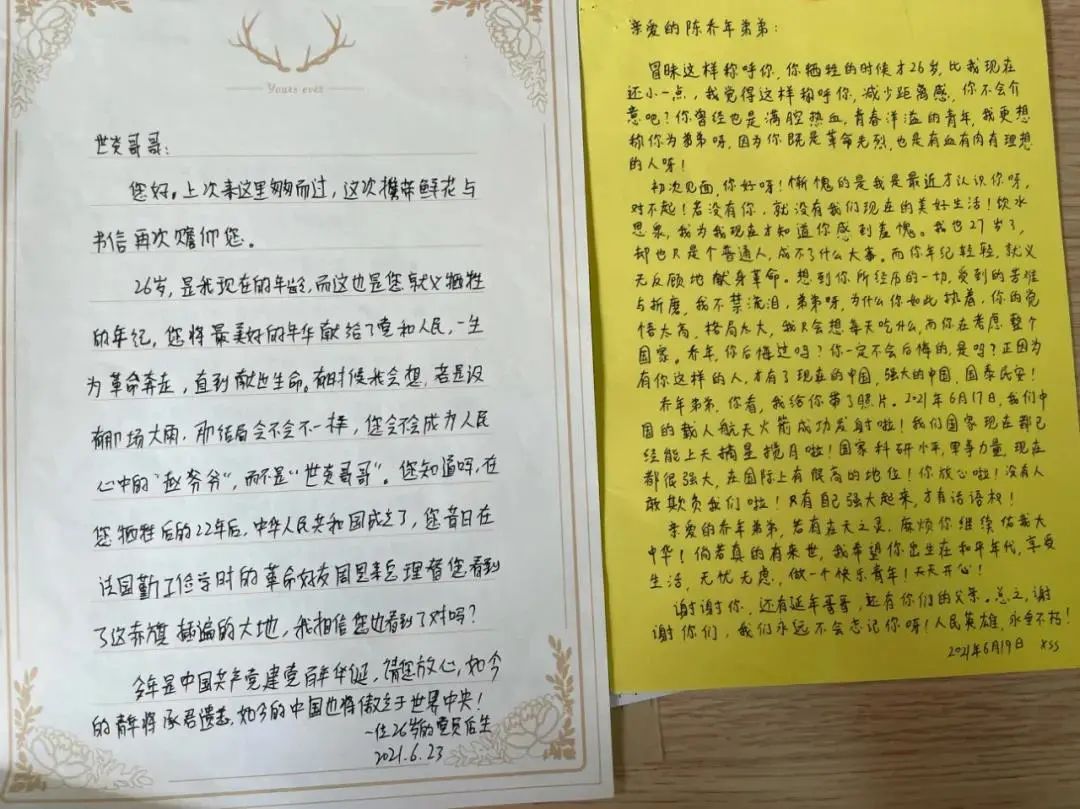 Yours ever
世炎哥哥：
您好。上次来这里匆匆而过，这次携带鲜花与
书信再次瞻仰您。
26岁，是我现在的年龄，而这也是您就义牺牲
的年纪，您将最美好的年华献给了党和人民，一生
为革命奔走，直到献出生命。有时候我会想，若是没
有那场大雨，那结局会不会不一样，您会不会成为人民
心中的“赵爷爷”，而不是“世炎哥哥”。您知道吗，在
您牺牲后的22年后，中华人民共和国成立了，您昔日在
法国勤工俭学时的革命好友周恩来总理替您看到
了这赤旗插遍的大地，我相信您也看到了对吗？
今年是中国共产党建党百年华诞，请您放心，如今
的青年将承君遗志，如今的中国也将傲立于世界中央！
一位26岁的党员后生
2021.6.23
亲爱的陈乔年弟弟：
冒昧这样称呼你，你牺牲的时候才26岁，比我现在
还小一点，我觉得这样称呼你，减少距离感，你不会介
意吧？你曾经也是满腔热血，青春洋溢的青年，我更想
称你为弟弟呀，因为你既是革命先烈，也是有血有肉有理想
的人呀！
初次见面，你好呀！惭愧的是我是最近才认识你呀，
对不起！若没有你，就没有我们现在的美好生活！饮水
思泉，我为我现在才知道你感到羞愧。我也27岁了，
却也只是个普通人，成不了什么大事。而你年纪轻轻，就义
无反顾地献身革命。想到你所经历的一切，受到的苦难
与折磨，我不禁流泪，弟弟呀，为什么你如此执着，你的觉
悟太高，格局太大，我只会想每天吃什么，而你在考虑整个
国家。乔年，你后悔过吗？你一定不会后悔的，是吗？正因为
有你这样的人，才有了现在的中国，强大的中国，国泰民安！
乔年弟弟，你看，我给你带了照片。2021年6月17日，我们中
国的载人航天火箭成功发射啦！我们国家现在都已
经能上天摘星揽月啦！国家科研水平，军事力量，现在
都很强大，在国际上有很高的地位！你放心啦！没有人
敢欺负我们啦！只有自己强大起来，才有话语权！
亲爱的乔年弟弟，若有在天之灵，麻烦你继续佑我大
中华！倘若真的有来世，我希望你出生在和平年代，享受
生活，无忧无虑，做一个快乐青年！天天开心！
谢谢你，还有延年哥哥，还有你们的父亲。总之，谢
谢你们，我们永远不会忘记你呀！人民英雄，永垂不朽！
2021年6月19日 XSS